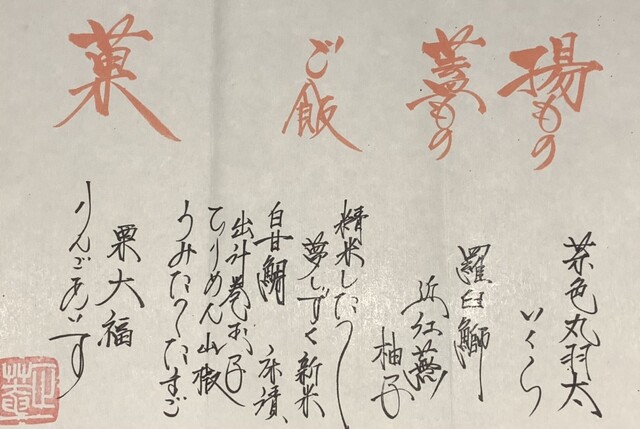 揚もの
茶色丸羽太
いくら
蓋もの
羅臼鰤
近江蕪
柚子
ご飯
精米したて
夢しずく新米
白甘鯛 床漬、
出汁巻玉子
ちりめん山椒
うみたてたまご
菓
栗大福
りんごあいす